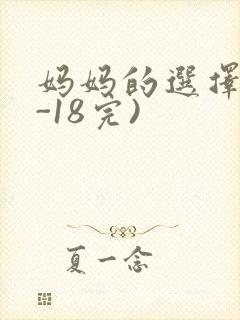 妈妈的選擇
-18完)
夏一念